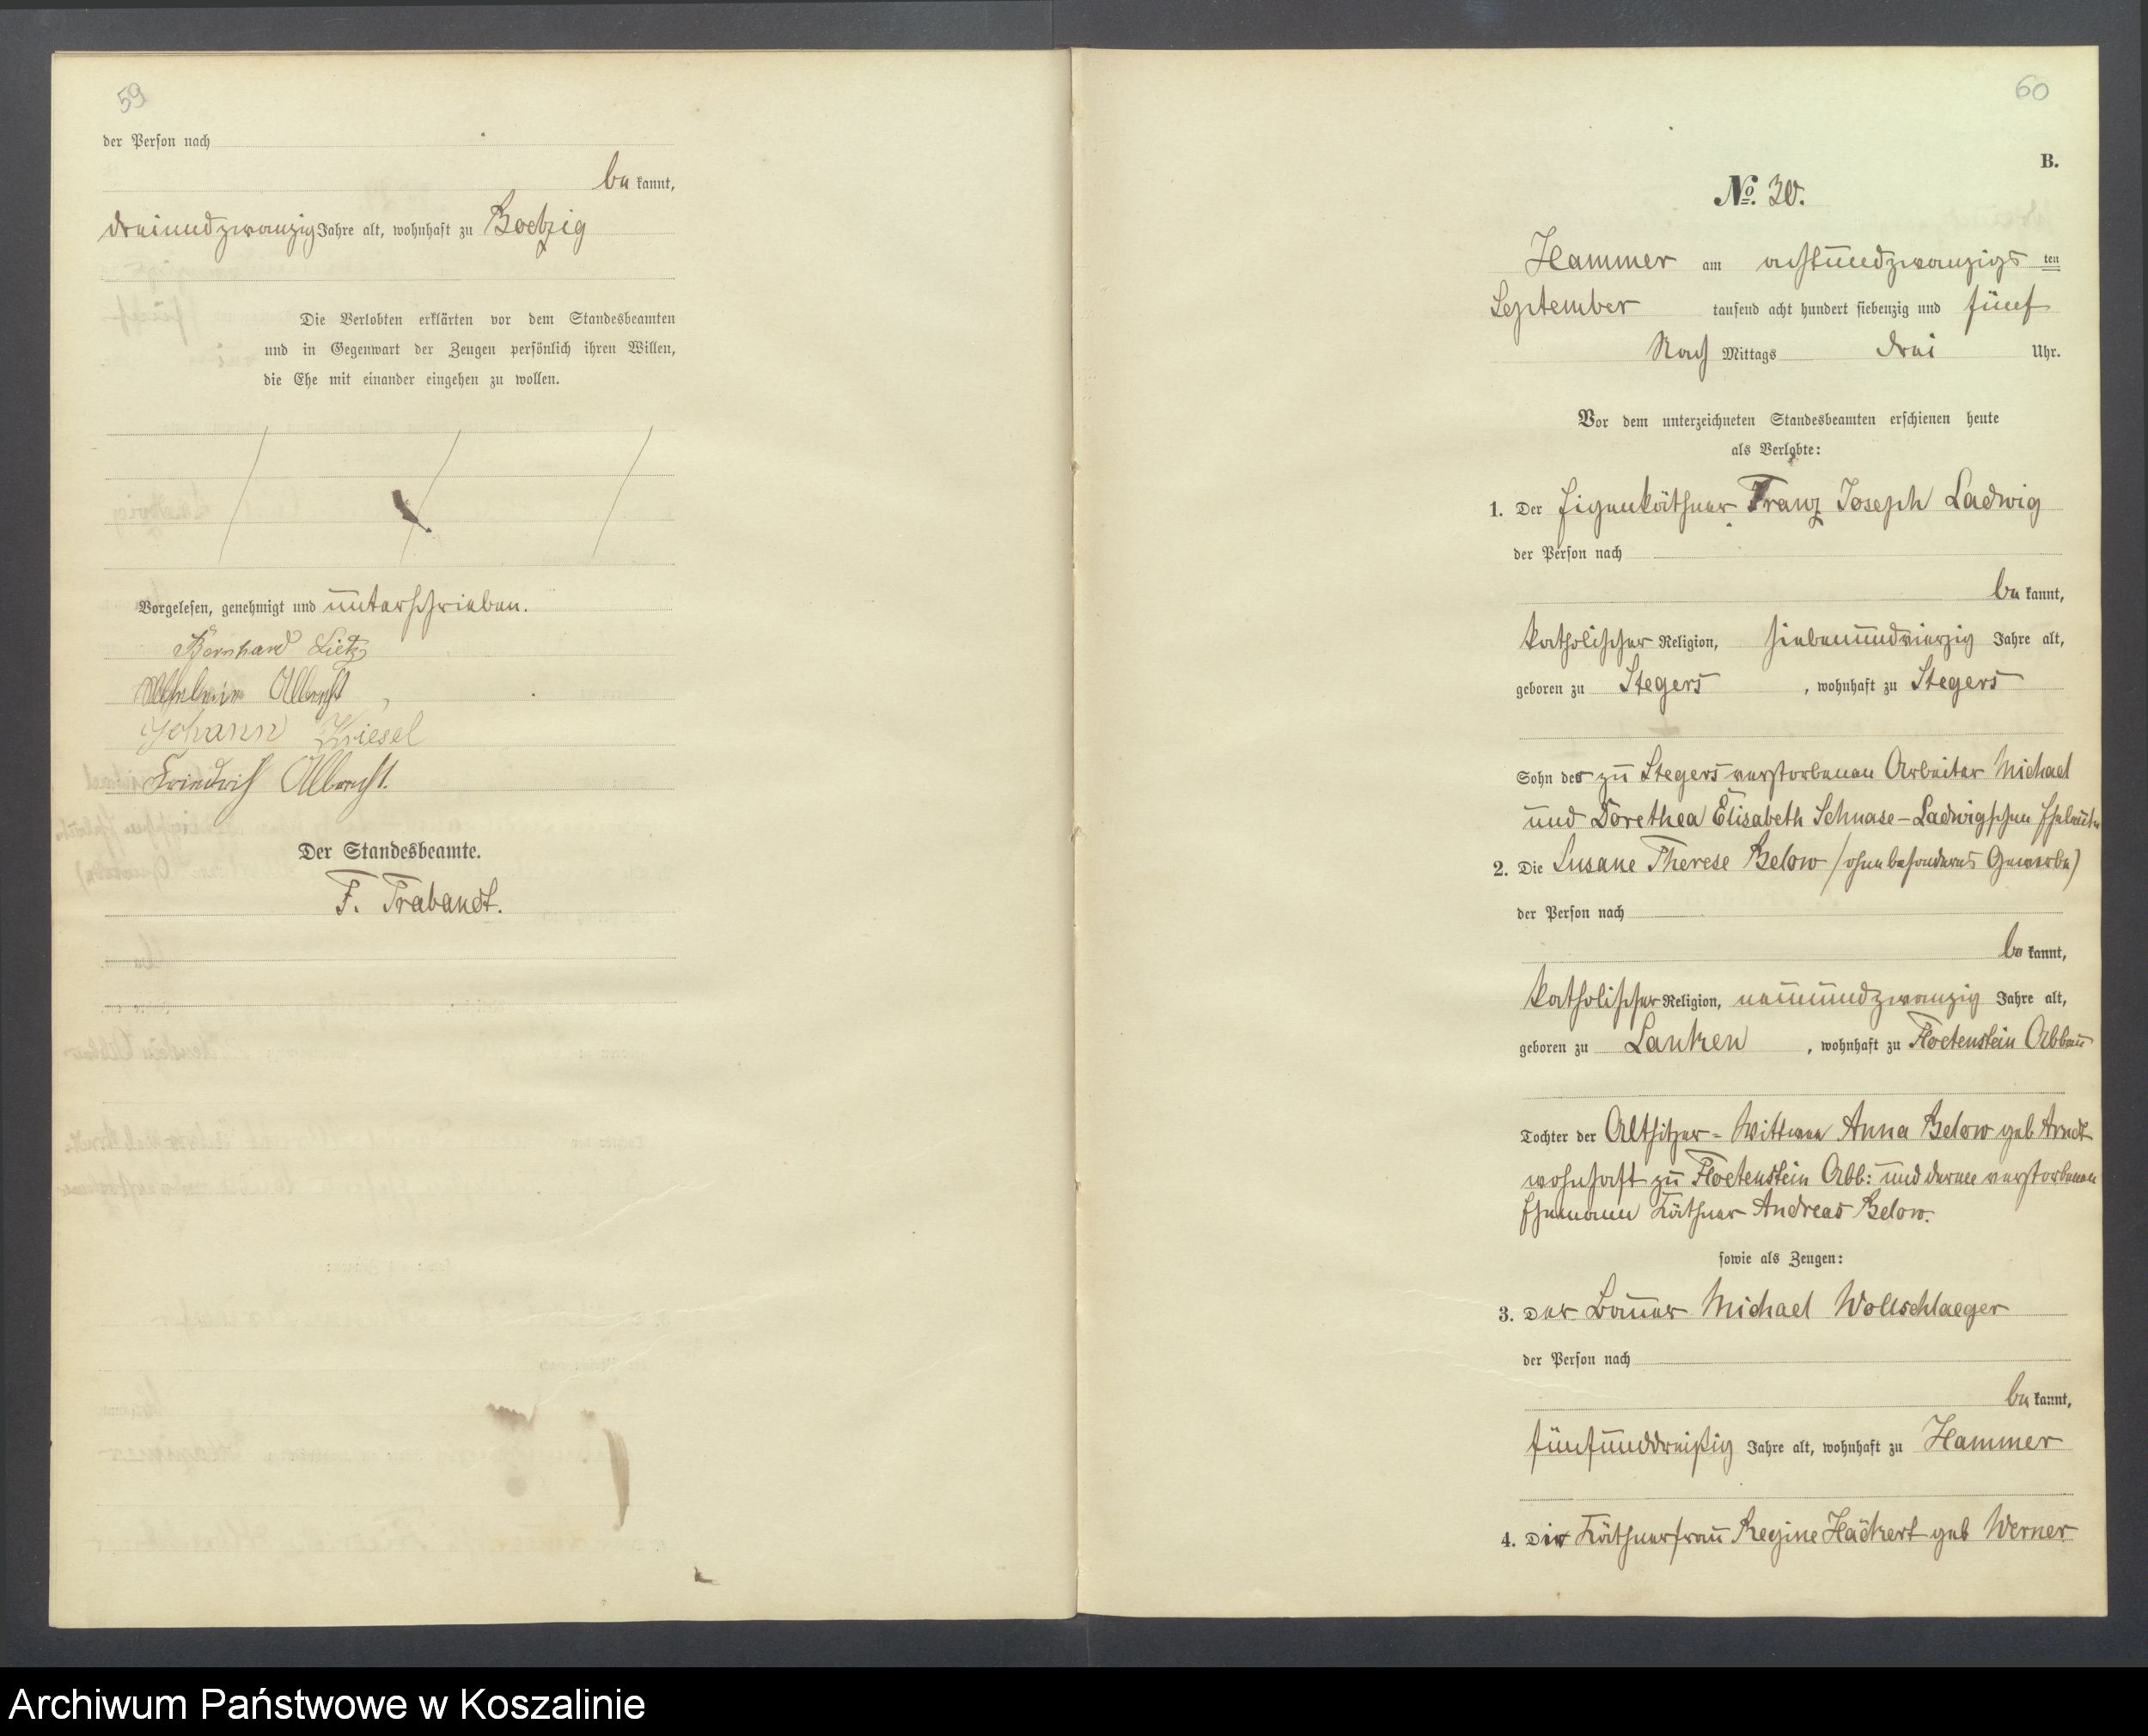 59
der Person nach
be kannt,
dreiundzwanzig Jahre alt, wohnhaft zu Boetzig
Die Verlobten erklärten vor dem Standesbeamten
und in Gegenwart der Zeugen persönlich ihren Willen,
die Ehe mit einander eingehen zu wollen.
Vorgelesen, genehmigt und unterschrieben.
Bernhard Lietz
Albrecht
Johann Kriesel
Friedrich Albrecht.
Der Standesbeamte.
F. Trabandt.
60
B.
No. 30.
Hammer am achtundzwanzigs ten
September tausend acht hundert siebenzig und fünf
Nach Mittags drei Uhr.
Vor dem unterzeichneten Standesbeamten erschienen heute
als Verlobte:
1. Der Eigenkäthner Franz Joseph Ladwig
der Person nach
be kannt,
katholischer Religion, siebenundvierzig Jahre alt,
geboren zu Stegers , wohnhaft zu Stegers
Sohn der zu Stegers verstorbenen Arbeiter Michael
und Dorethea Elisabeth Schnase-Ladwigschen Eheleute
2. Die Susane Therese Below (ohne besonderes Gewerbe)
der Person nach
be kannt,
katholischer Religion, neunundzwanzig Jahre alt,
geboren zu Lanken , wohnhaft zu Floetenstein Abbau
Tochter der Altsitzer-Wittwee Anna Below geb Arndt
wohnhaft zu Floetenstein Abb: und deren verstorbenen
Ehemann Käthner Andreas Below.
sowie als Zeugen:
3. Der Bauer Michael Wollschlaeger
der Person nach
be kannt,
fünfunddreißig Jahre alt, wohnhaft zu Hammer
4. Die Käthnerfrau Regine Häckert geb Werner
Archiwum Państwowe w Koszalinie